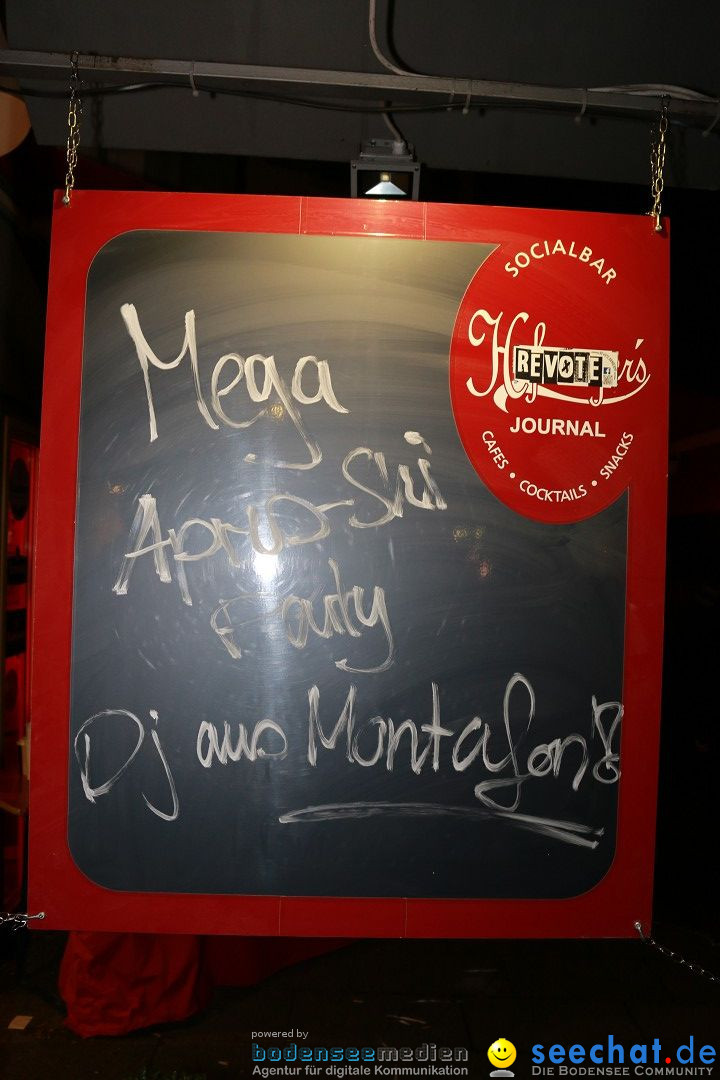 SOCIALBAR
REVOTE
JOURNAL
CAFES • COCKTAILS • SNACKS
Mega
Apres-Ski
Party
Dj aus Montafon!
powered by
bodenseemedien
Agentur für digitale Kommunikation
seechat.de
DIE BODENSEE COMMUNITY